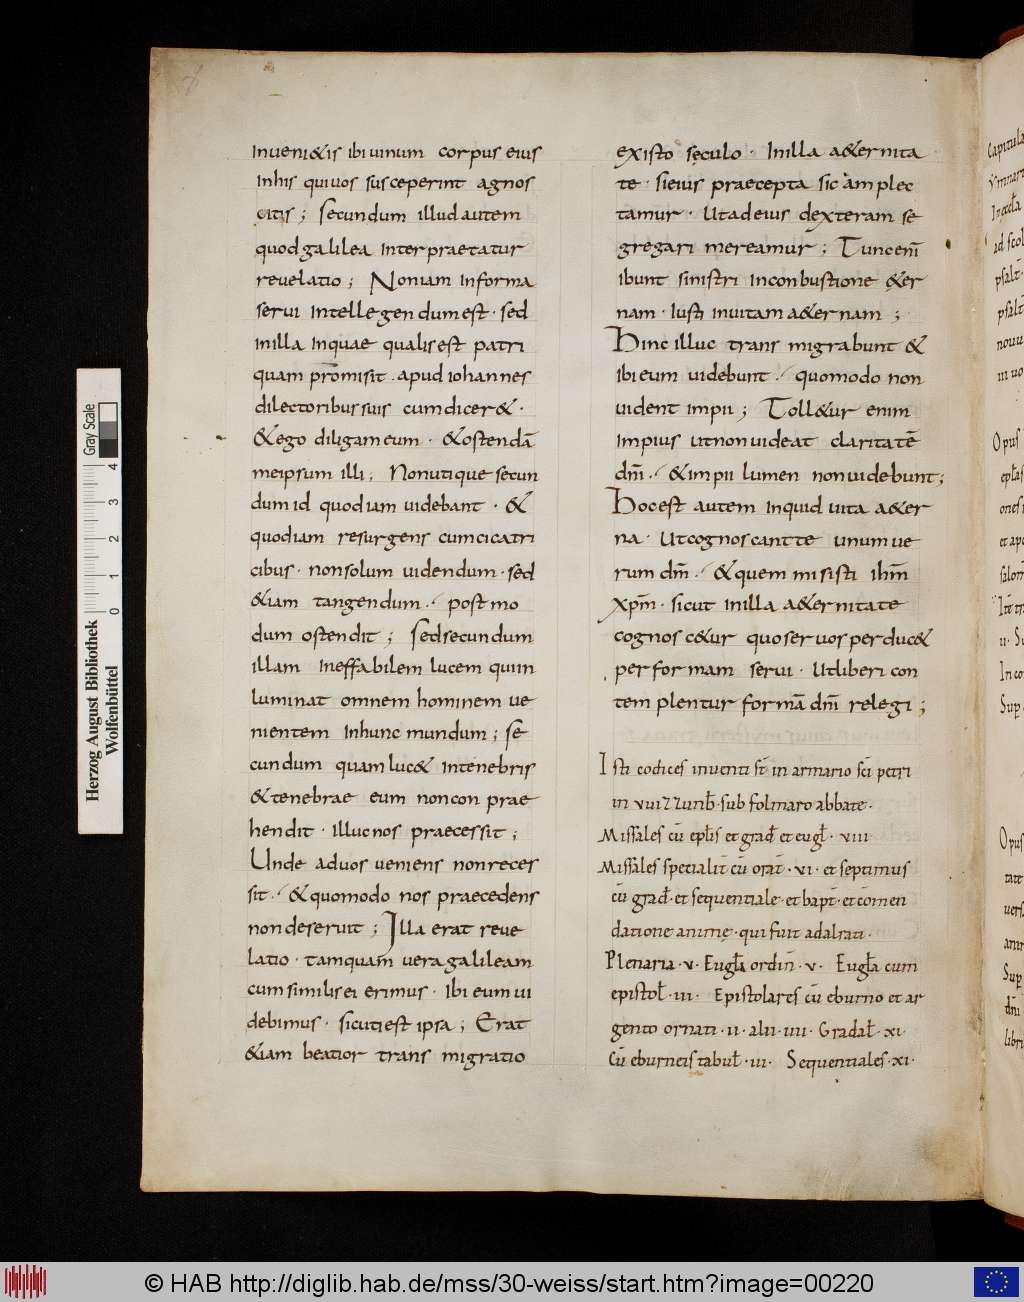 inueni&is ibi uinum corpus eius
inhis quiuos susceperint agnos
citis ; secundum illud autem
quod galilea interpraetatur
reuelatio ; Non iam informa
serui intellegendum est · sed
inilla inquae qualis est patri
quam prōmisit · apud iohannes
dilectoribus suis cum dicer& ·
& ego diligam eum · & ostendā
meipsum illi ; Non utique secun
dum id quod iam uidebant · &
quod iam resurgens cum cicatri
cibus · non solum uidendum · sed
&iam tangendum · post mo
dum ostendit ; Sed secundum
illam ineffabilem lucem qui in
luminat omnem hominem ue
nientem inhunc mundum ; se
cundum quam luc& intenebris
& tenebrae eum non con prae
hendit · illuc nos praecessit ;
Unde aduos ueniens non reces
sit · & quomodo nos praecedens
non deseruit ; Illa erat reue
latio · tamquam uera galileam
cum similis ei erimus · Ibi eum ui
debimus · sicuti est ipsa ; Erat
&iam beatior trans migratio
existo sęculo · Inilla a&ernita
te · si eius praecepta sic amplec
tamur · Ut ad eius dexteram se
gregari mereamur ; Tunc eni̅
ibunt sinistri in conbustione &er
nam · Iusti inuitam a&ernam ;
Hinc illuc trans migrabunt &
ibi eum uidebunt · quomodo non
uident impii ; Toll&ur enim
impius ut non uideat claritatē
dn̅i · & impii lumen non uidebunt ;
Hoc est autem inquid uita a&er
na · Ut cognoscant te unum ue
rum dm̅ · & quem misisti ihm̅
xpm̅ · sicut inilla a&ernitate
cognosc&ur quo seruos perduc&
per formam serui · Ut liberi con
templentur formā dn̅i relegi ;
Isti codices inuenti st̅ in armario sc̅i petri
sub folmaro abbate ·
Missales cū epl̅is et grad̅ et eugl̅ · VIII
Missales specialit̅ cū orat̅ · VI · et septimus
cū grad̅ · et sequentiale · et bapt̅ · et cōmen
datione animę · qui fuit adalrati ·
Plenaria · V · Eugl̅a ordin̅ · V · Eugl̅a cum
epistol̅ · III · Epistolares cū eburno et ar
gento ornati · II · alii · IIII · Gradal̅ · XI ·
Cū eburneis tabul̅ · III · Sequentiales · XI ·
Capitula
Opus
Opus
Herzog August Bibliothek
Wolfenbüttel
Gray Scale
0 1 2 3 4
© HAB http://diglib.hab.de/mss/30-weiss/start.htm?image=00220